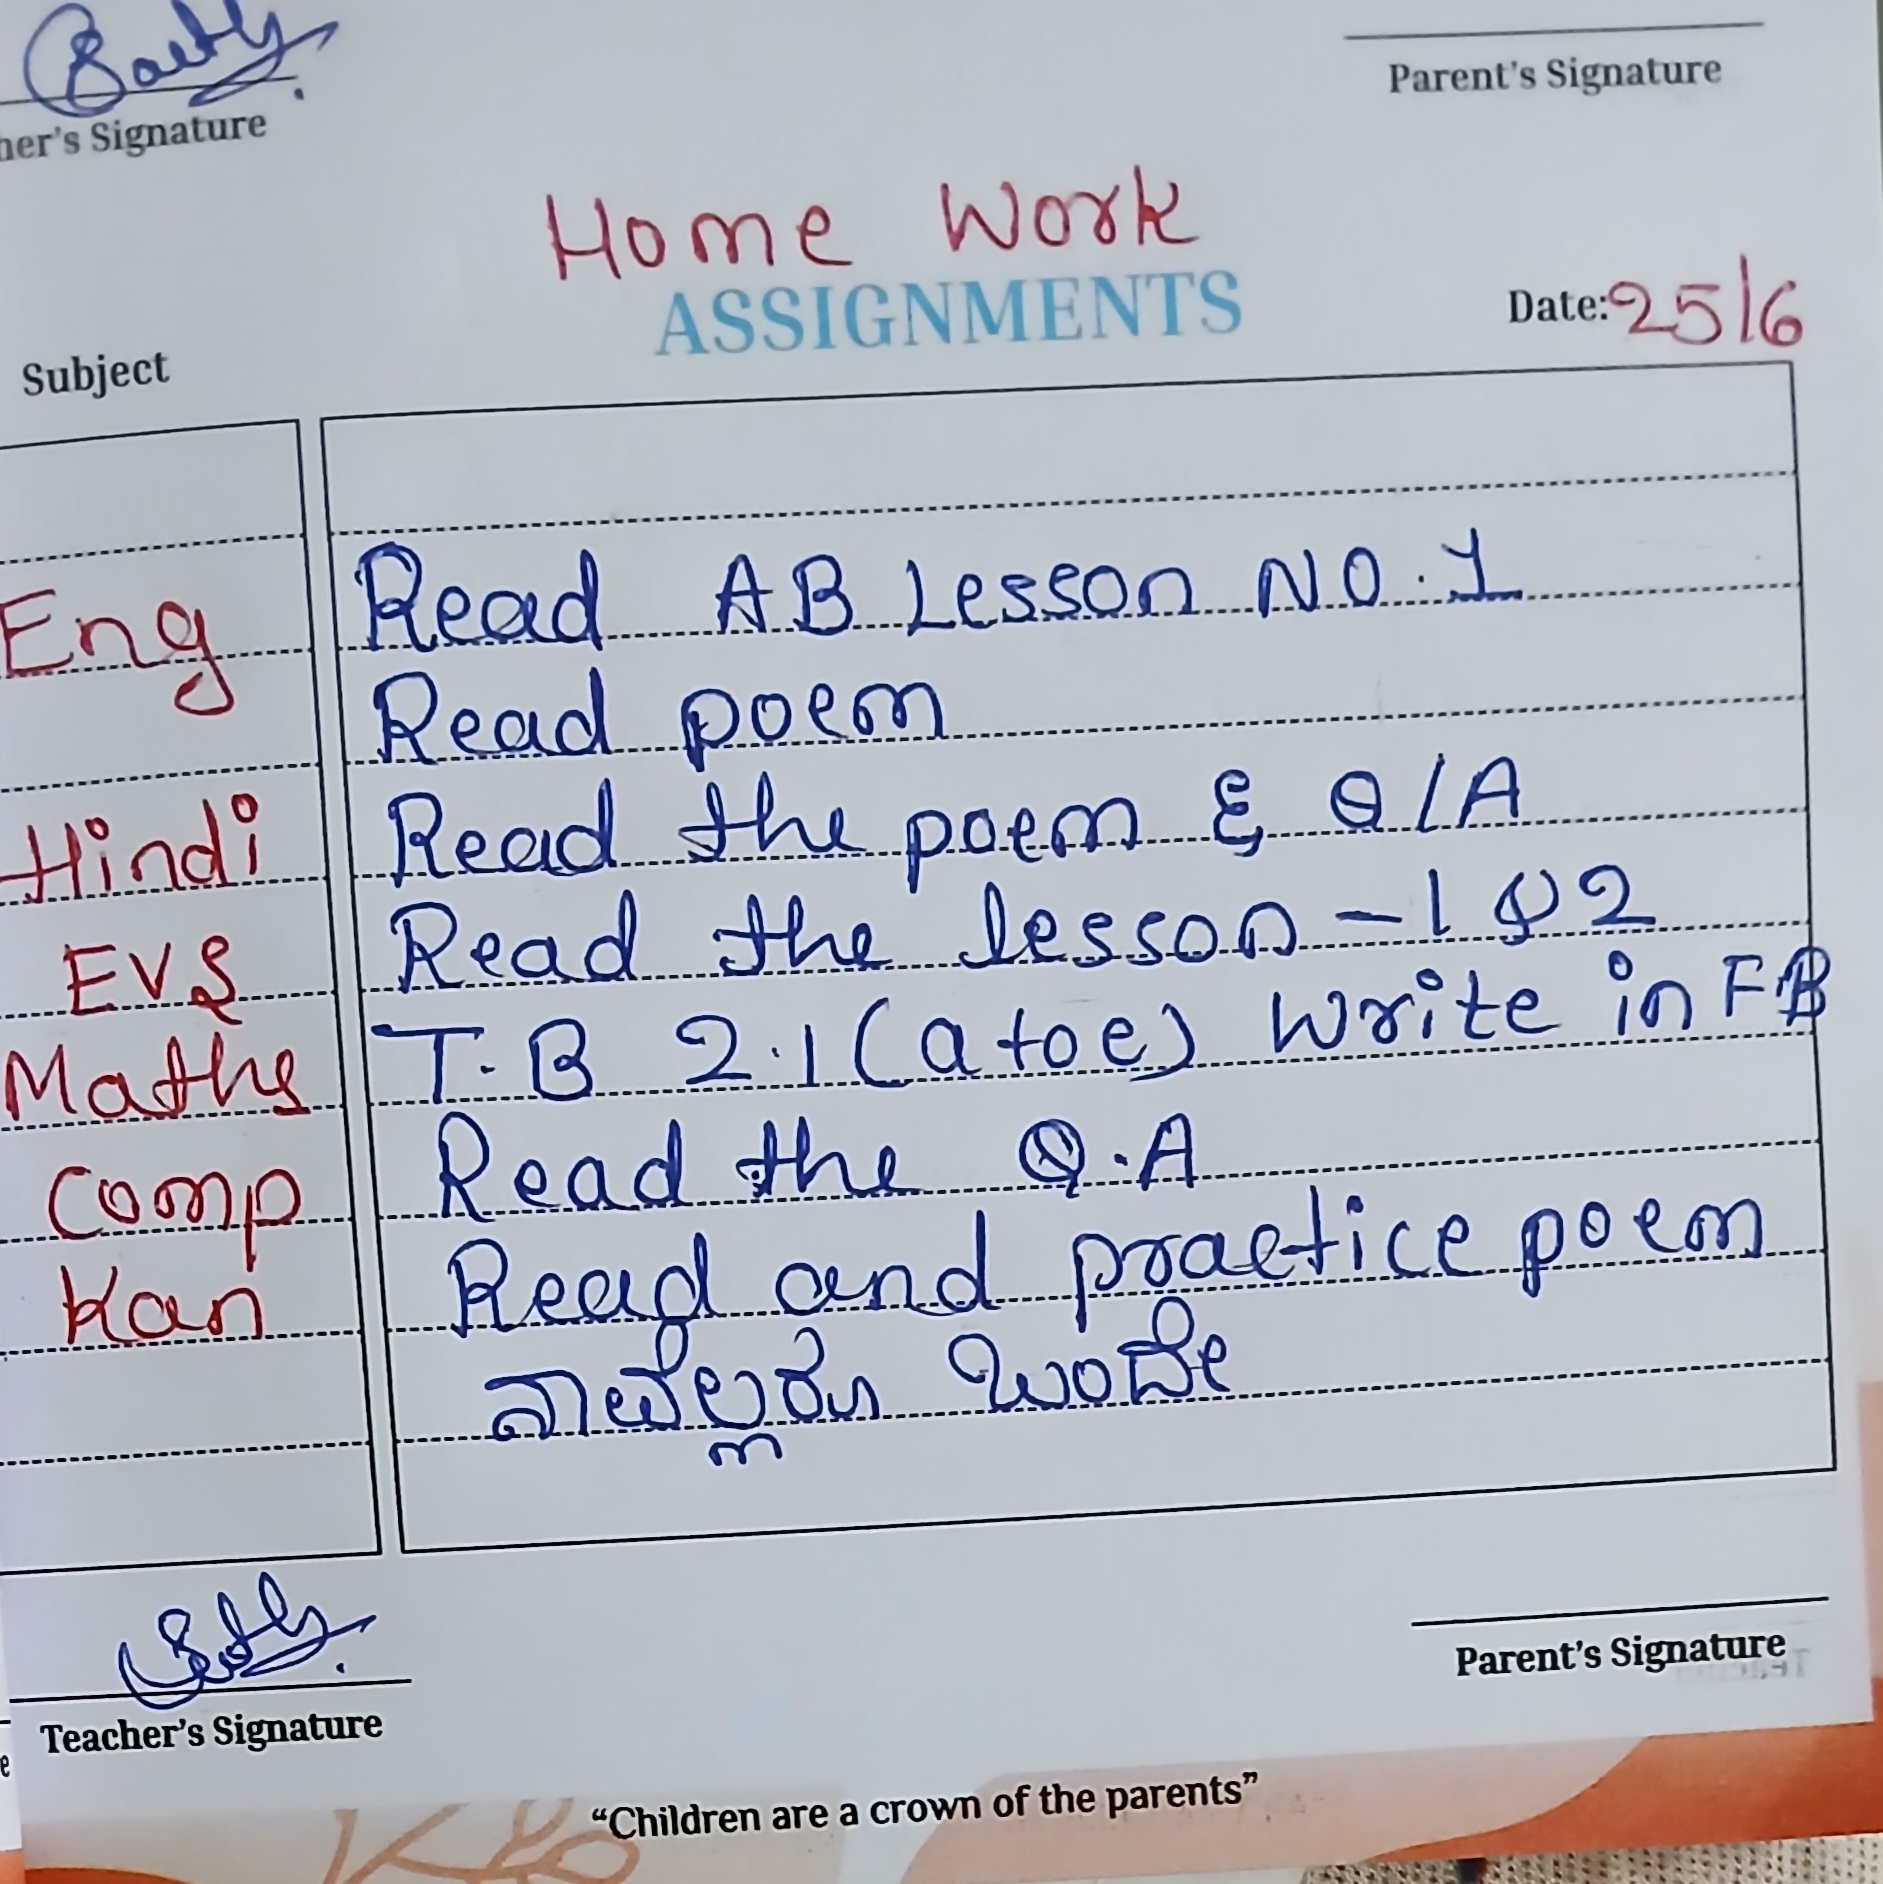 her's Signature
Parent's Signature
Home Work
ASSIGNMENTS
Date: 25/6
Subject
Eng Read AB Lesson NO. 1
Read poem
Hindi Read the poem & Q/A
EVS Read the lesson - 1 & 2
Maths T.B 2.1 (a to e) Write in FB
Comp Read the Q.A
Kan Read and practice poem
ನಾವೆಲ್ಲರೂ ಒಂದೇ
Teacher's Signature
Parent's Signature
"Children are a crown of the parents"